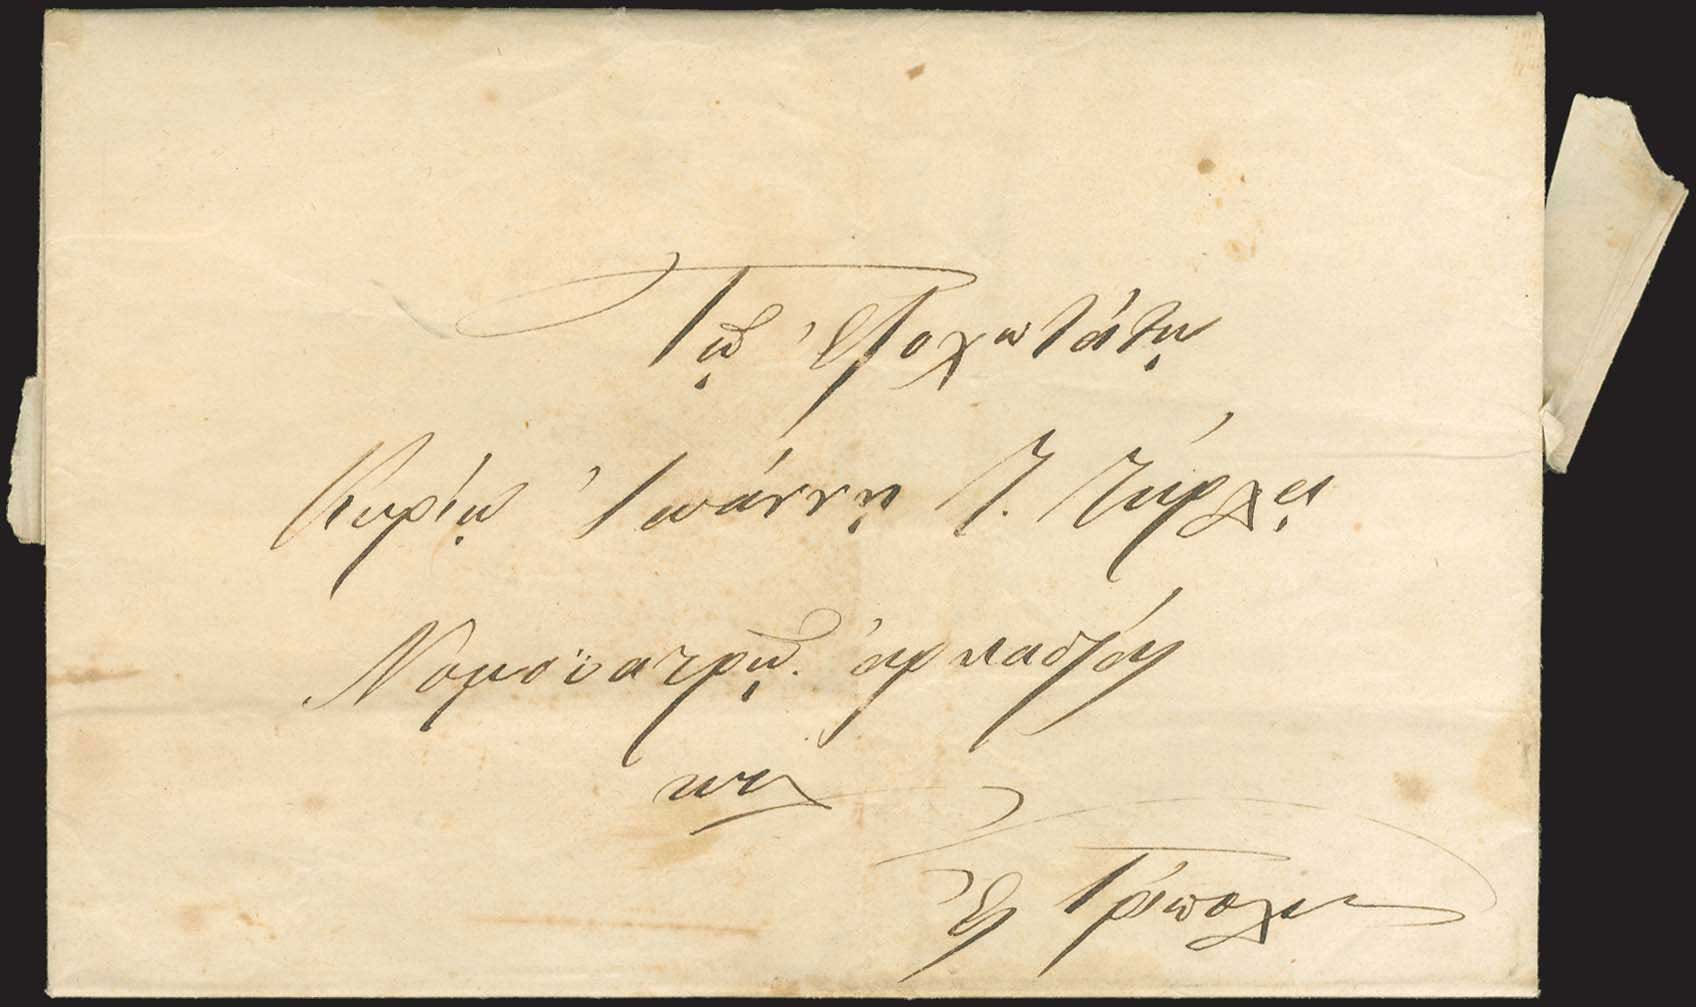 Τῷ ἐξοχωτάτῳ
Κυρίῳ Ἰωάννῃ
Νομοϊατρῷ Ἀρκαδίας
κτλ
Εἰς Τρίπολιν